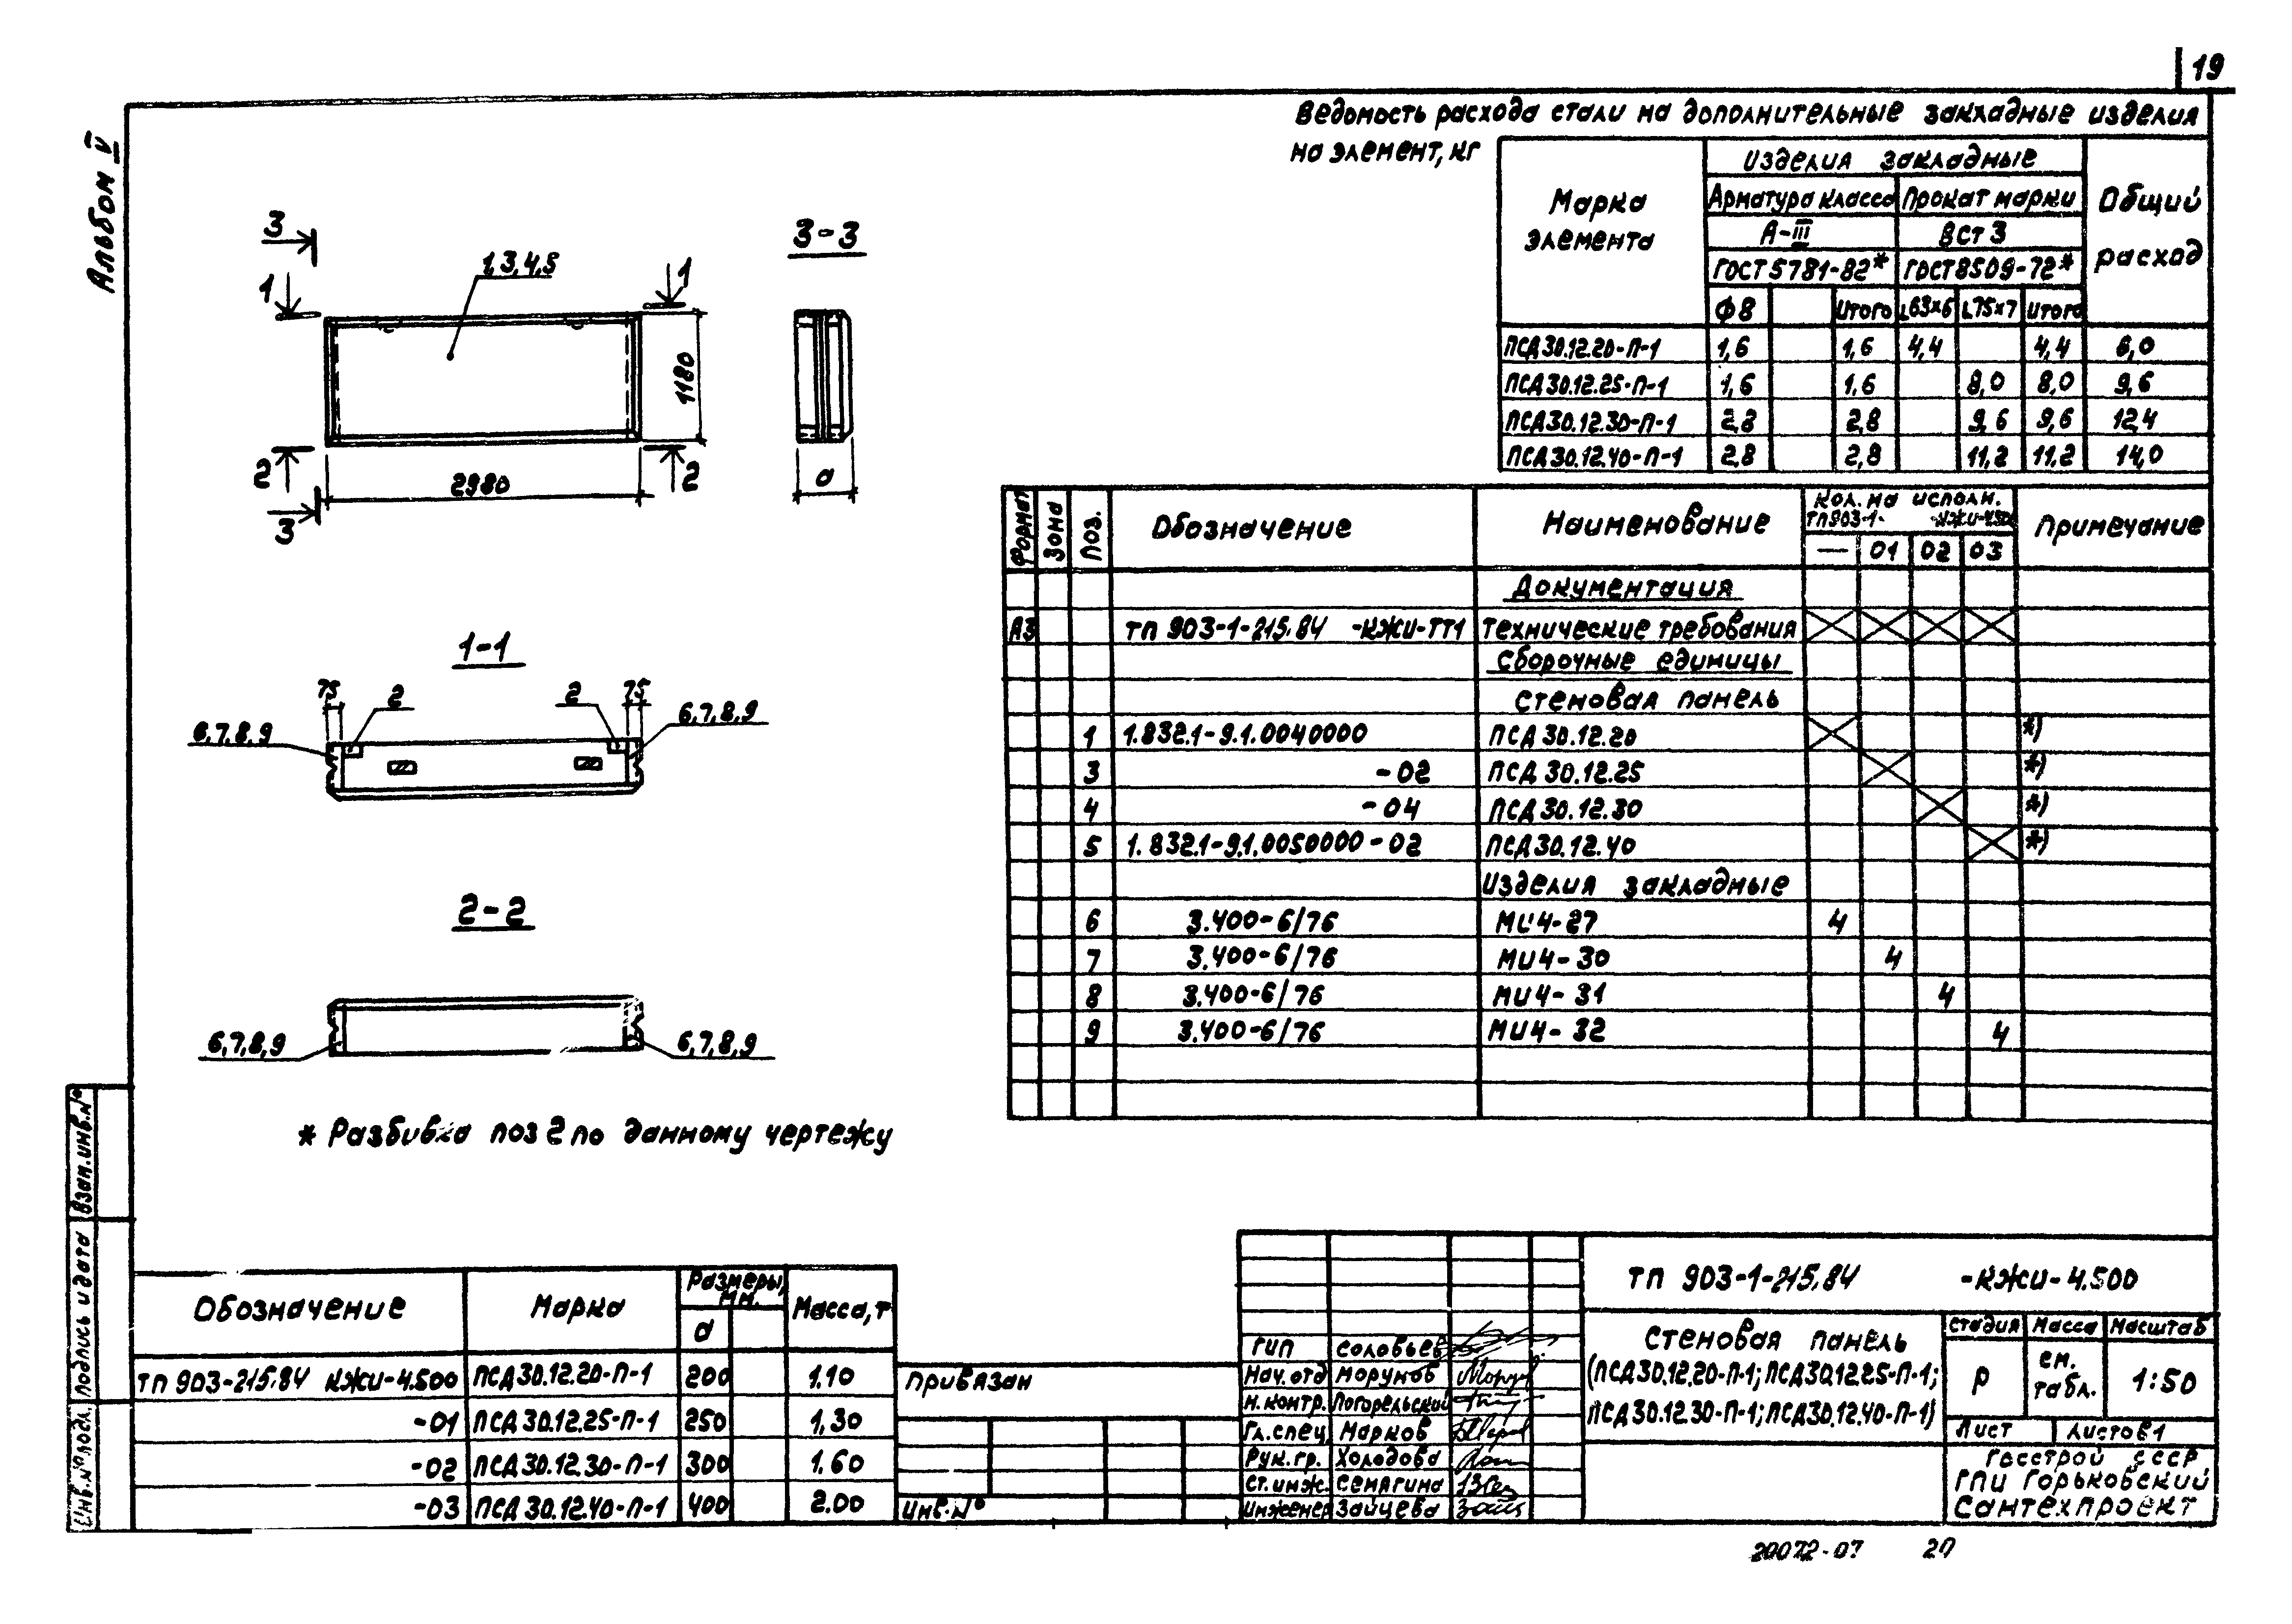 19
Альбом V
Ведомость расхода стали на дополнительные закладные изделия
на элемент, кг
Марка элемента
Изделия закладные
Общий расход
Арматура класса
Прокат марки
А-III
ВСт 3
ГОСТ 5781-82*
ГОСТ 8509-72*
Ф8 Итого L63×6 L75×7 Итого
ПСД 30.12.20-П-1 1,6 1,6 4,4 4,4 6,0
ПСД 30.12.25-П-1 1,6 1,6 8,0 8,0 9,6
ПСД 30.12.30-П-1 2,8 2,8 9,6 9,6 12,4
ПСД 30.12.40-П-1 2,8 2,8 11,2 11,2 14,0
3
3-3
1,3,4,5
1
1
1180
2
2980
2
3
d
1-1
75
2
2
75
6,7,8,9
6,7,8,9
2-2
6,7,8,9
6,7,8,9
* Разбивка поз 2 по данному чертежу
Формат Зона Поз. Обозначение Наименование Кол. на исполн. Примечание
ТП 903-1- -КЖИ-4.500
— 01 02 03
Документация
А3 ТП 903-1-215.84 -КЖИ-ТТ1 Технические требования
Сборочные единицы
Стеновая панель
1 1.832.1-9.1.0040000 ПСД 30.12.20 *)
3 -02 ПСД 30.12.25 *)
4 -04 ПСД 30.12.30 *)
5 1.832.1-9.1.0050000-02 ПСД 30.12.40 *)
Изделия закладные
6 3.400-6/76 МИ4-27 4
7 3.400-6/76 МИ4-30 4
8 3.400-6/76 МИ4-31 4
9 3.400-6/76 МИ4-32 4
Взам. инв. №
Подпись и дата
Инв. № подл.
Обозначение Марка Размеры, мм. Масса, т
d
ТП 903-215.84 КЖИ-4.500 ПСД 30.12.20-П-1 200 1.10
-01 ПСД 30.12.25-П-1 250 1,30
-02 ПСД 30.12.30-П-1 300 1.60
-03 ПСД 30.12.40-П-1 400 2.00
Привязан
Инв. №
ГИП Соловьев
Нач. отд Морунов
Н. контр. Погорельский
Гл. спец. Марков
Рук. гр. Холодова
Ст. инж. Семягина
Инженер Зайцева
ТП 903-1-215.84 -КЖИ-4.500
Стеновая панель
(ПСД 30.12.20-П-1; ПСД 30.12.25-П-1;
ПСД 30.12.30-П-1; ПСД 30.12.40-П-1)
Стадия Масса Масштаб
Р см. табл. 1:50
Лист Листов 1
Госстрой СССР
ГПИ Горьковский
Сантехпроект
20072-07 20